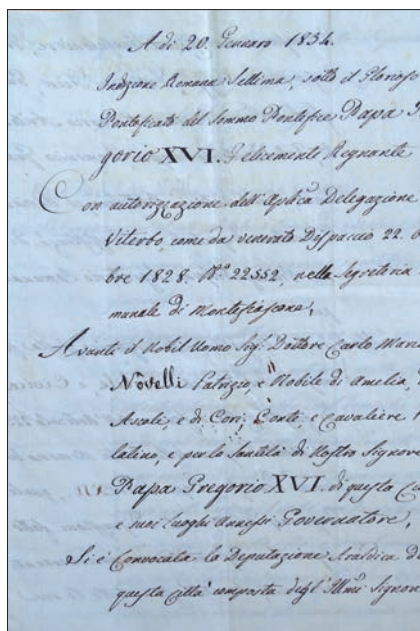 A dì 20. Gennaro 1834.
Indizione Romana Settima, sotto il Glorioso
Pontificato del Sommo Pontefice Papa
gorio XVI. Felicemente Regnante
Con autorizzazione dell' Aplica Delegazione
Viterbo, come da venerato Dispaccio 22.
bre 1828. N.º 22552, nella Segreteria
munale di Montefiascone,
Avanti il Nobil Uomo Sig. Dottore Carlo
Novelli Patrizio, e Nobile di Amelia,
Ascoli, e di Cori, Conte, e Cavaliere
latino, e per la Santità di Nostro Signore
Papa Gregorio XVI. di questa
e suoi luoghi annessi Governatore
Si è Convocata la Deputazione Araldica
questa Città composta degl' Illmi Signori